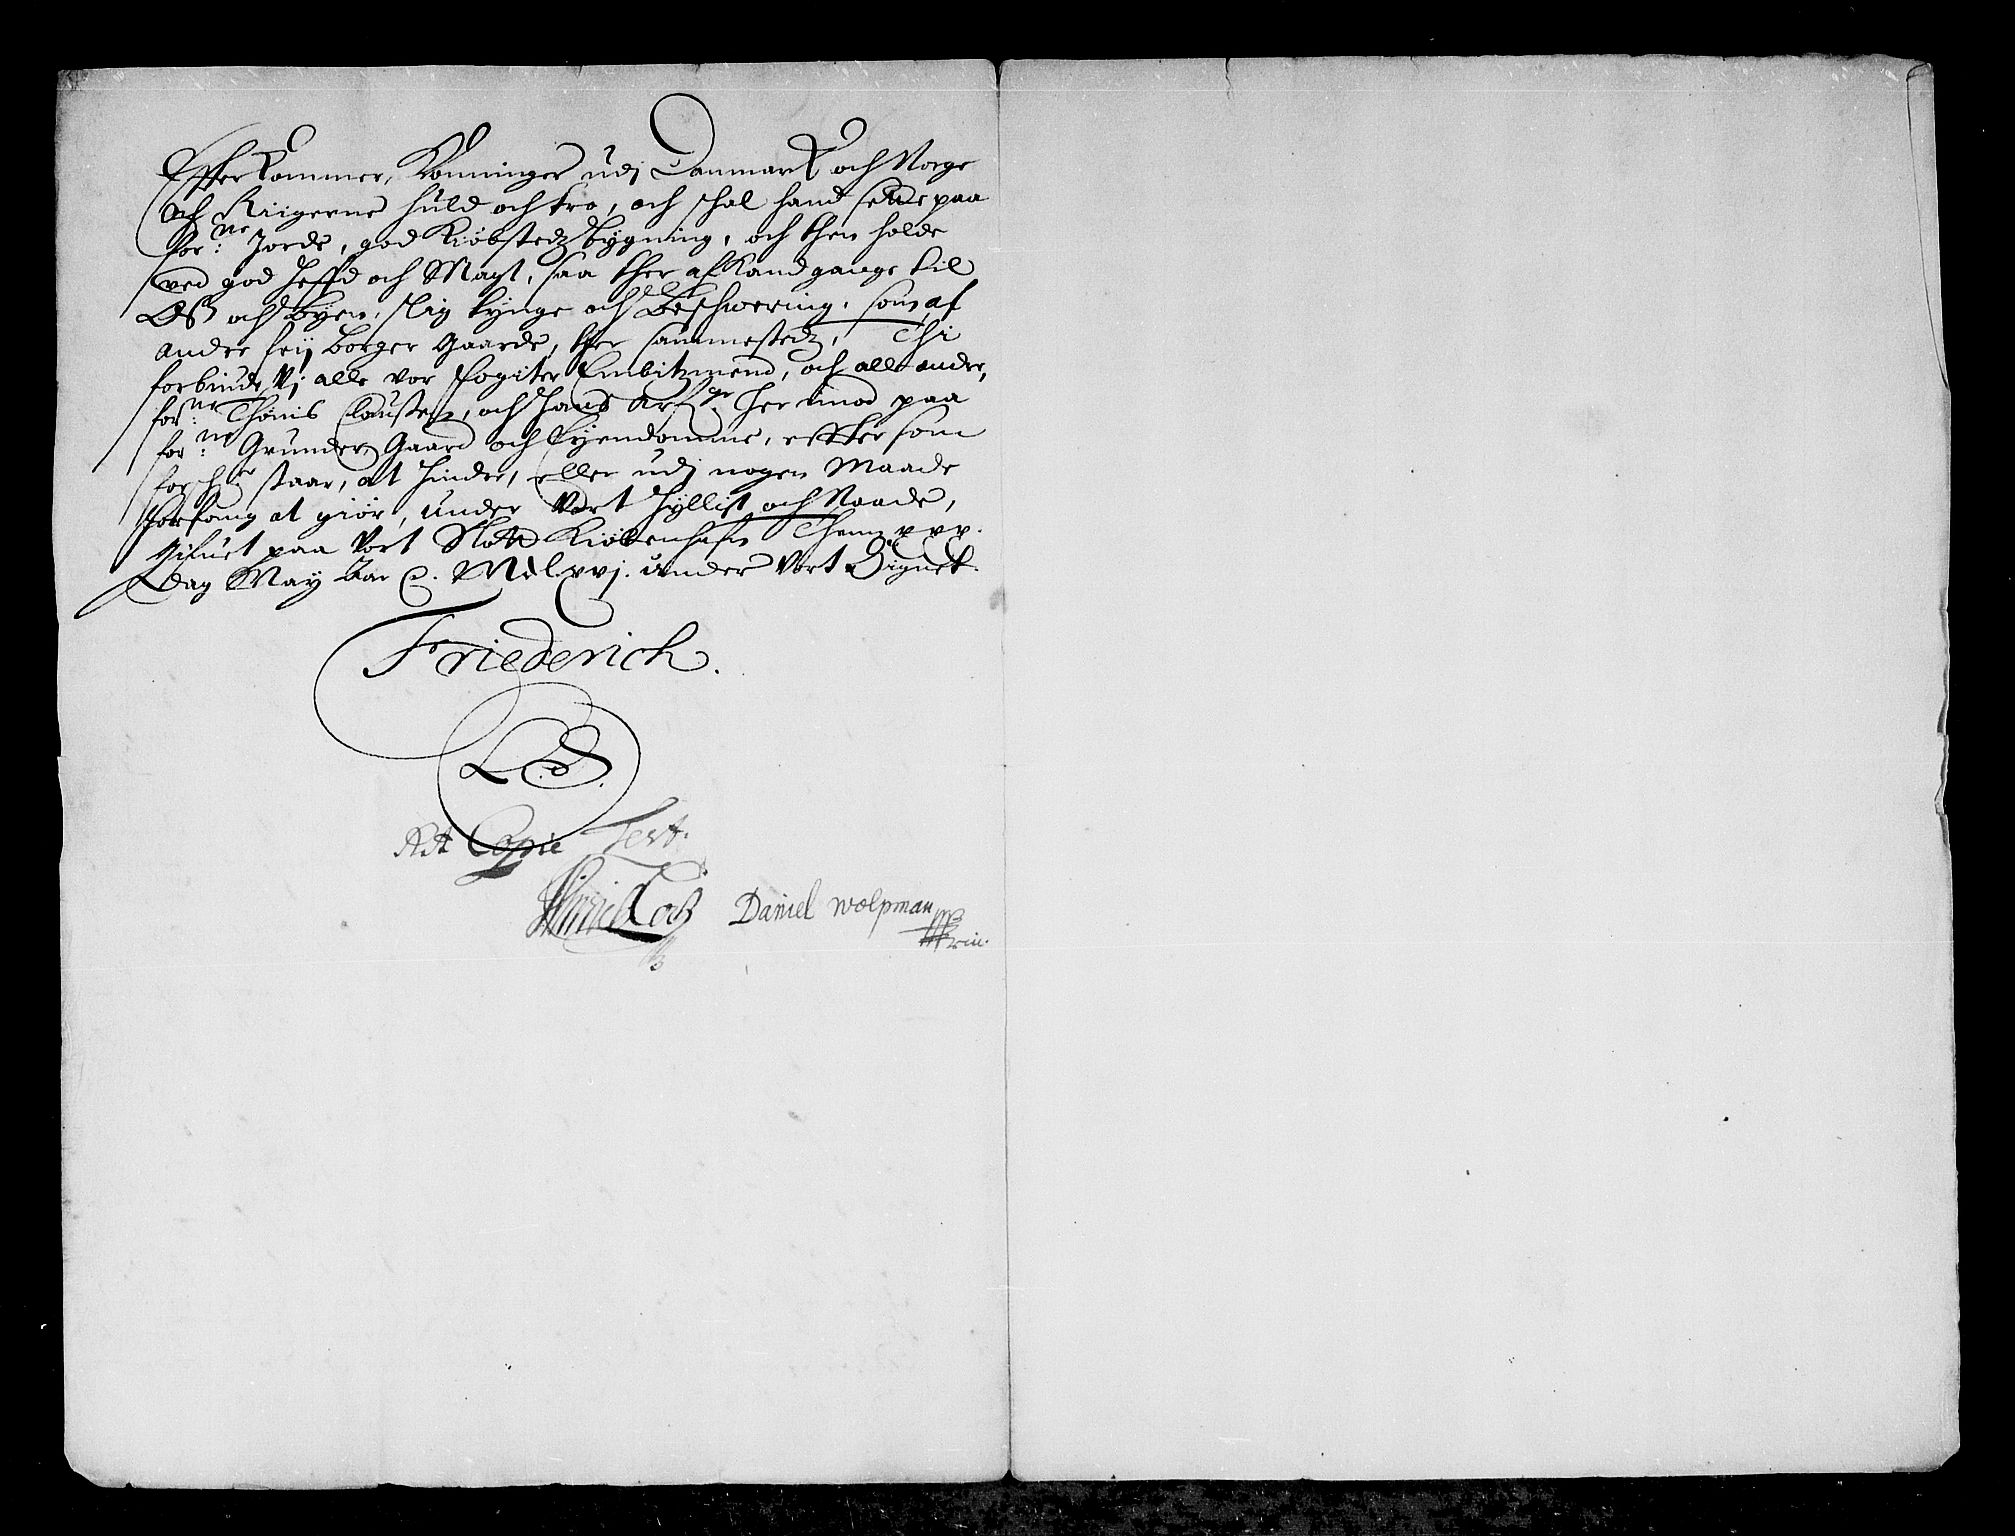 Effterkommer, Konninger udj Danmark och Norge
och Riigerne huld och tro, och schal hand sette paa
for:ne Jorde, god Kiøbstedz bygning, och then holde
ved god heffd och Magt, saa ther af kand gange til
Oß och byen, slig tynge och Beschwering, som af
andre frij borger Gaarde, ther sammestedz, Thi
forbiude Vj alle vor fogiter Embitzmend, och alle andre,
for:ne Thønis Clausen, och hans Arf:ge her imod paa
for:ne Grunder, Gaard och Eyendomme, effter som
forschr: staar, at hindre, eller udj nogen Maade
forfang at giøre, under Vort hyllist och Naade,
Gifuet paa Vort Slott Kiøbenhafn Thenn xxx.
Dag May Aar &c. Mdlxxvj. under Vort Signet.
Friederich.
LS.
Ret Copie Test:
Daniel Wolpman